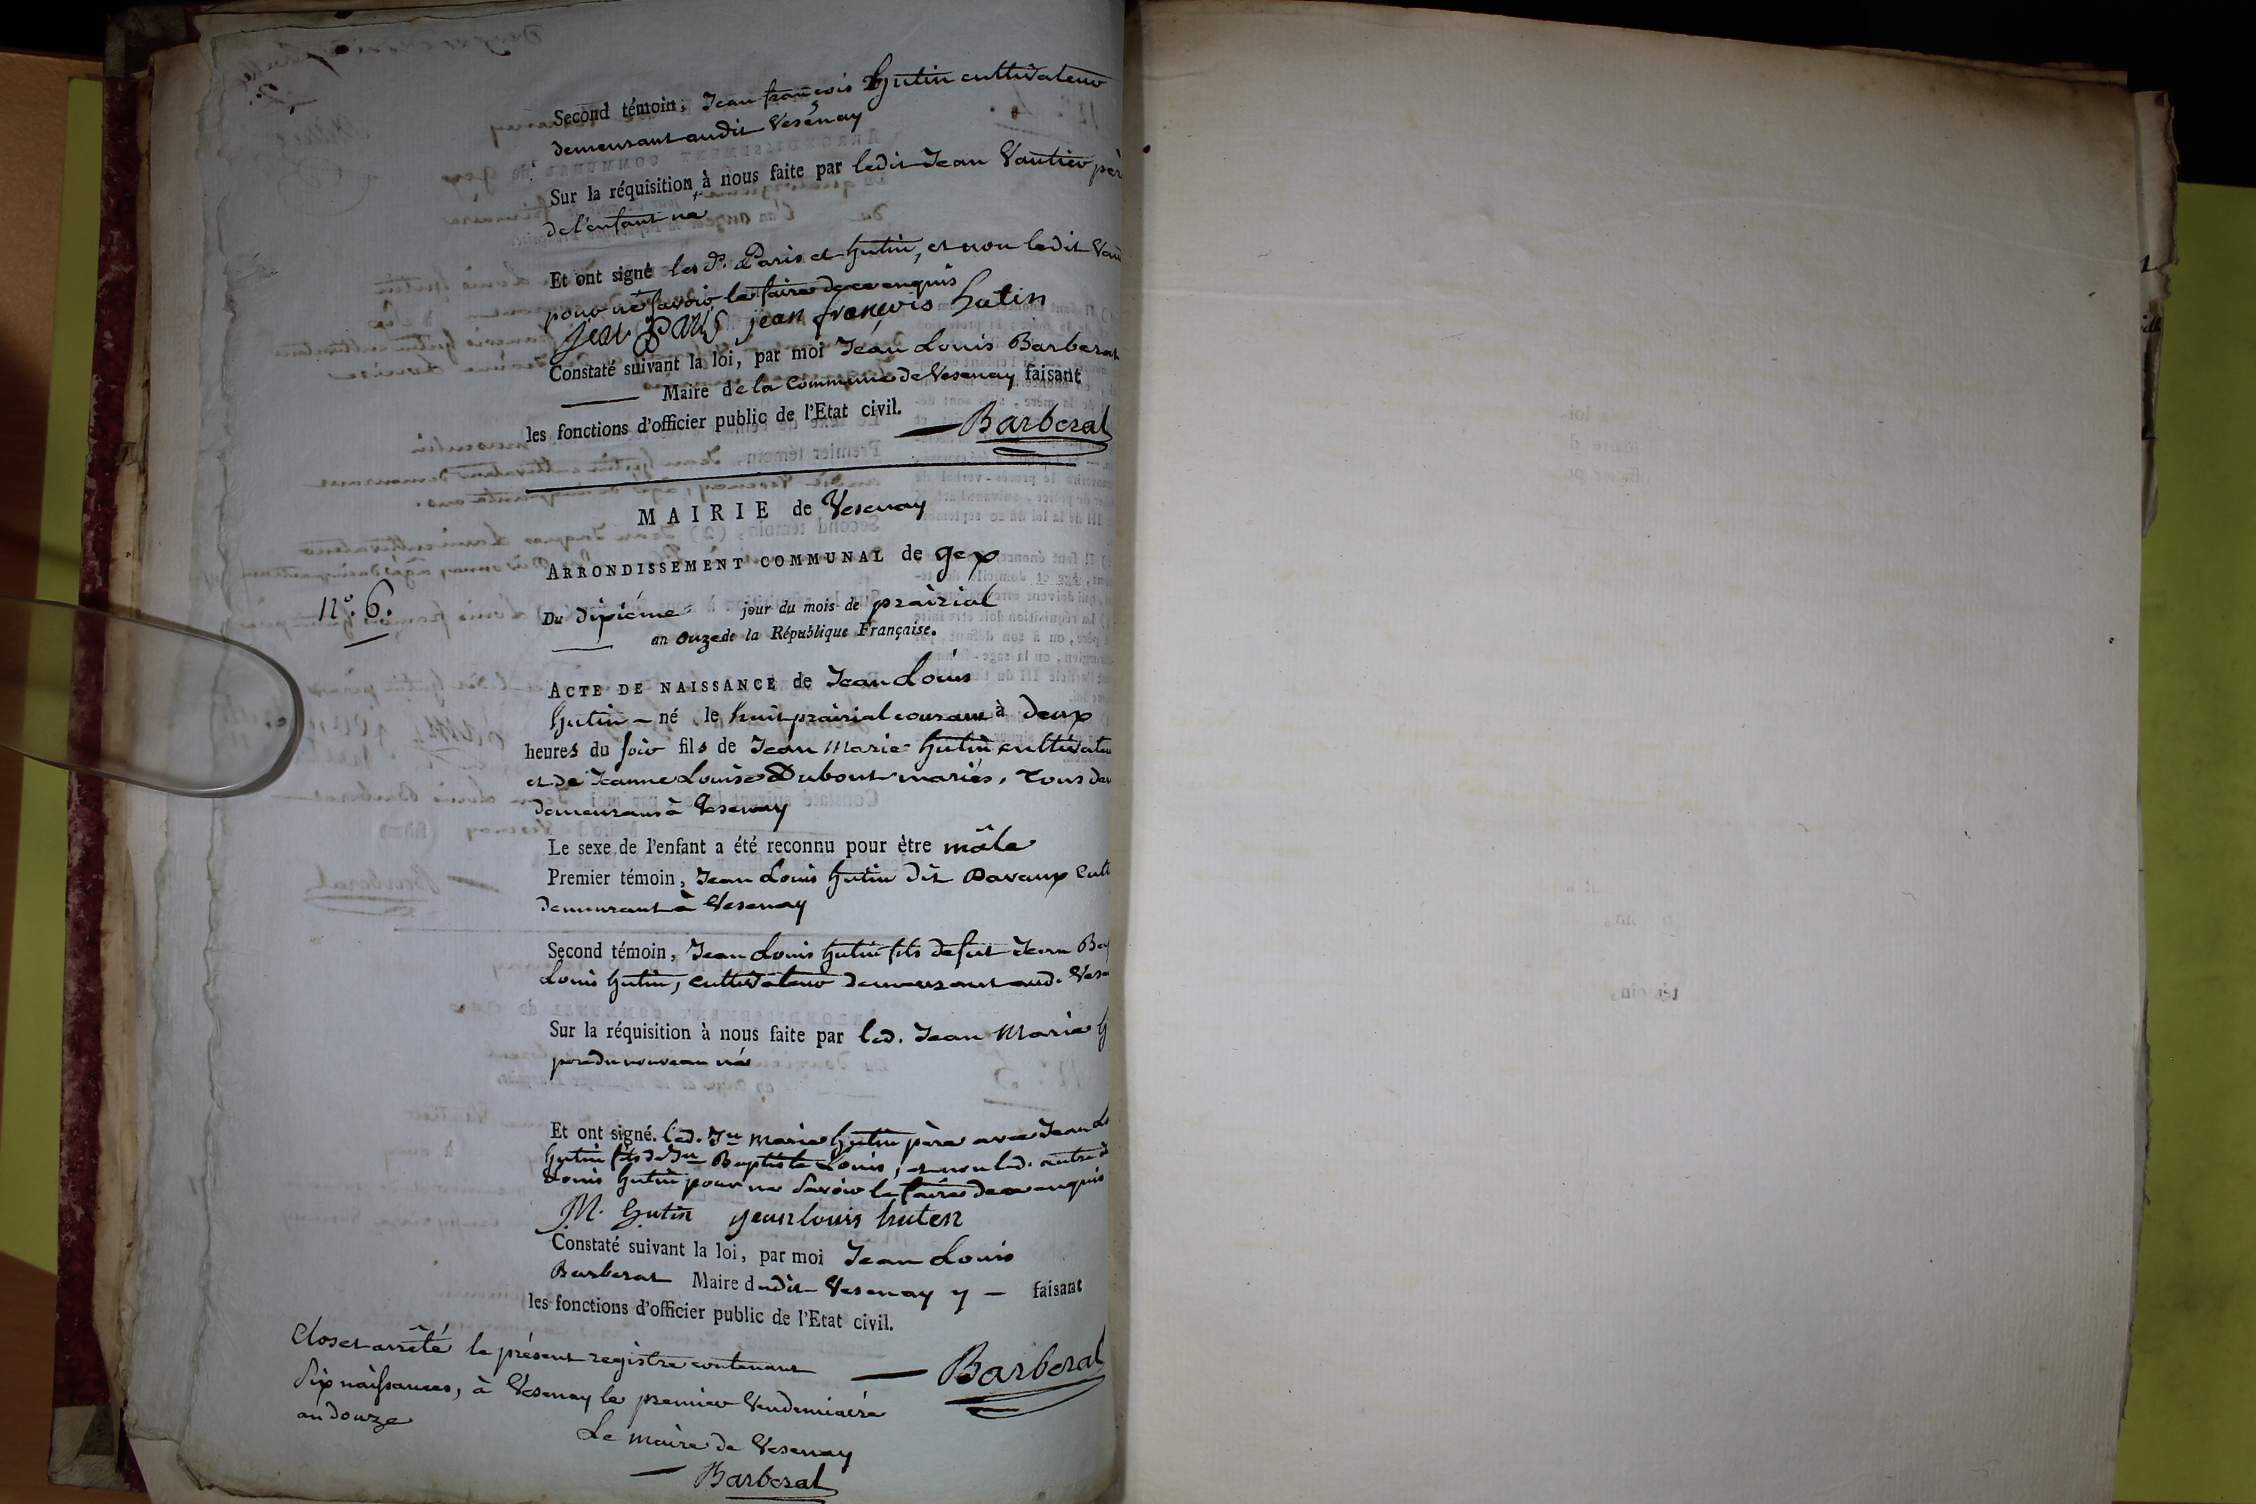 Second témoin, Jean françois hutin cultivateur
demeurant audit Vesenay
Sur la réquisition à nous faite par ledit Jean Vautier pèr
de l'enfant né
Et ont signé les Srs. Paris et hutin, et non ledit Vau
pour ne savoir le faire de ce enquis
jean Paris jean françois hutin
Constaté suivant la loi, par moi Jean Louis Barberat
Maire de la Commune de Vesenay faisant
les fonctions d'officier public de l'Etat civil.
Barberat
MAIRIE de Vesenay
ARRONDISSEMENT COMMUNAL de gex
N.o 6.
Du dixiéme jour du mois de prairial
an onze de la République Française.
ACTE DE NAISSANCE de Jean Louis
hutin né le huit prairial courant à deux
heures du soir fils de Jean Marie hutin cultivateu
et de Jeanne Louise Dubout mariés, tous deu
demeurans à Vesenay
Le sexe de l'enfant a été reconnu pour être mâle
Premier témoin, Jean Louis hutin dit Davaux Cult
demeurant à Vesenay
Second témoin, Jean Louis hutin fils de fut Jean Bap
Louis hutin, cultivateur demeurant aud. Vese
Sur la réquisition à nous faite par led. Jean Marie h
pere du nouveau né
Et ont signé. led. Jn Marie hutin père avec Jean Lo
hutin fils de Jn Baptiste Louis, et non led. autre J
Louis hutin pour ne savoir le faire de ce enquis
J M. hutin jean louis huten
Constaté suivant la loi, par moi Jean Louis
Barberat Maire dudit Vesenay y faisant
les fonctions d'officier public de l'Etat civil.
Barberat
Clos et arrêté le présent registre contenant
six naissances, à Vesenay le premier Vendemiaire
an douze
Le maire de Vesenay
Barberat